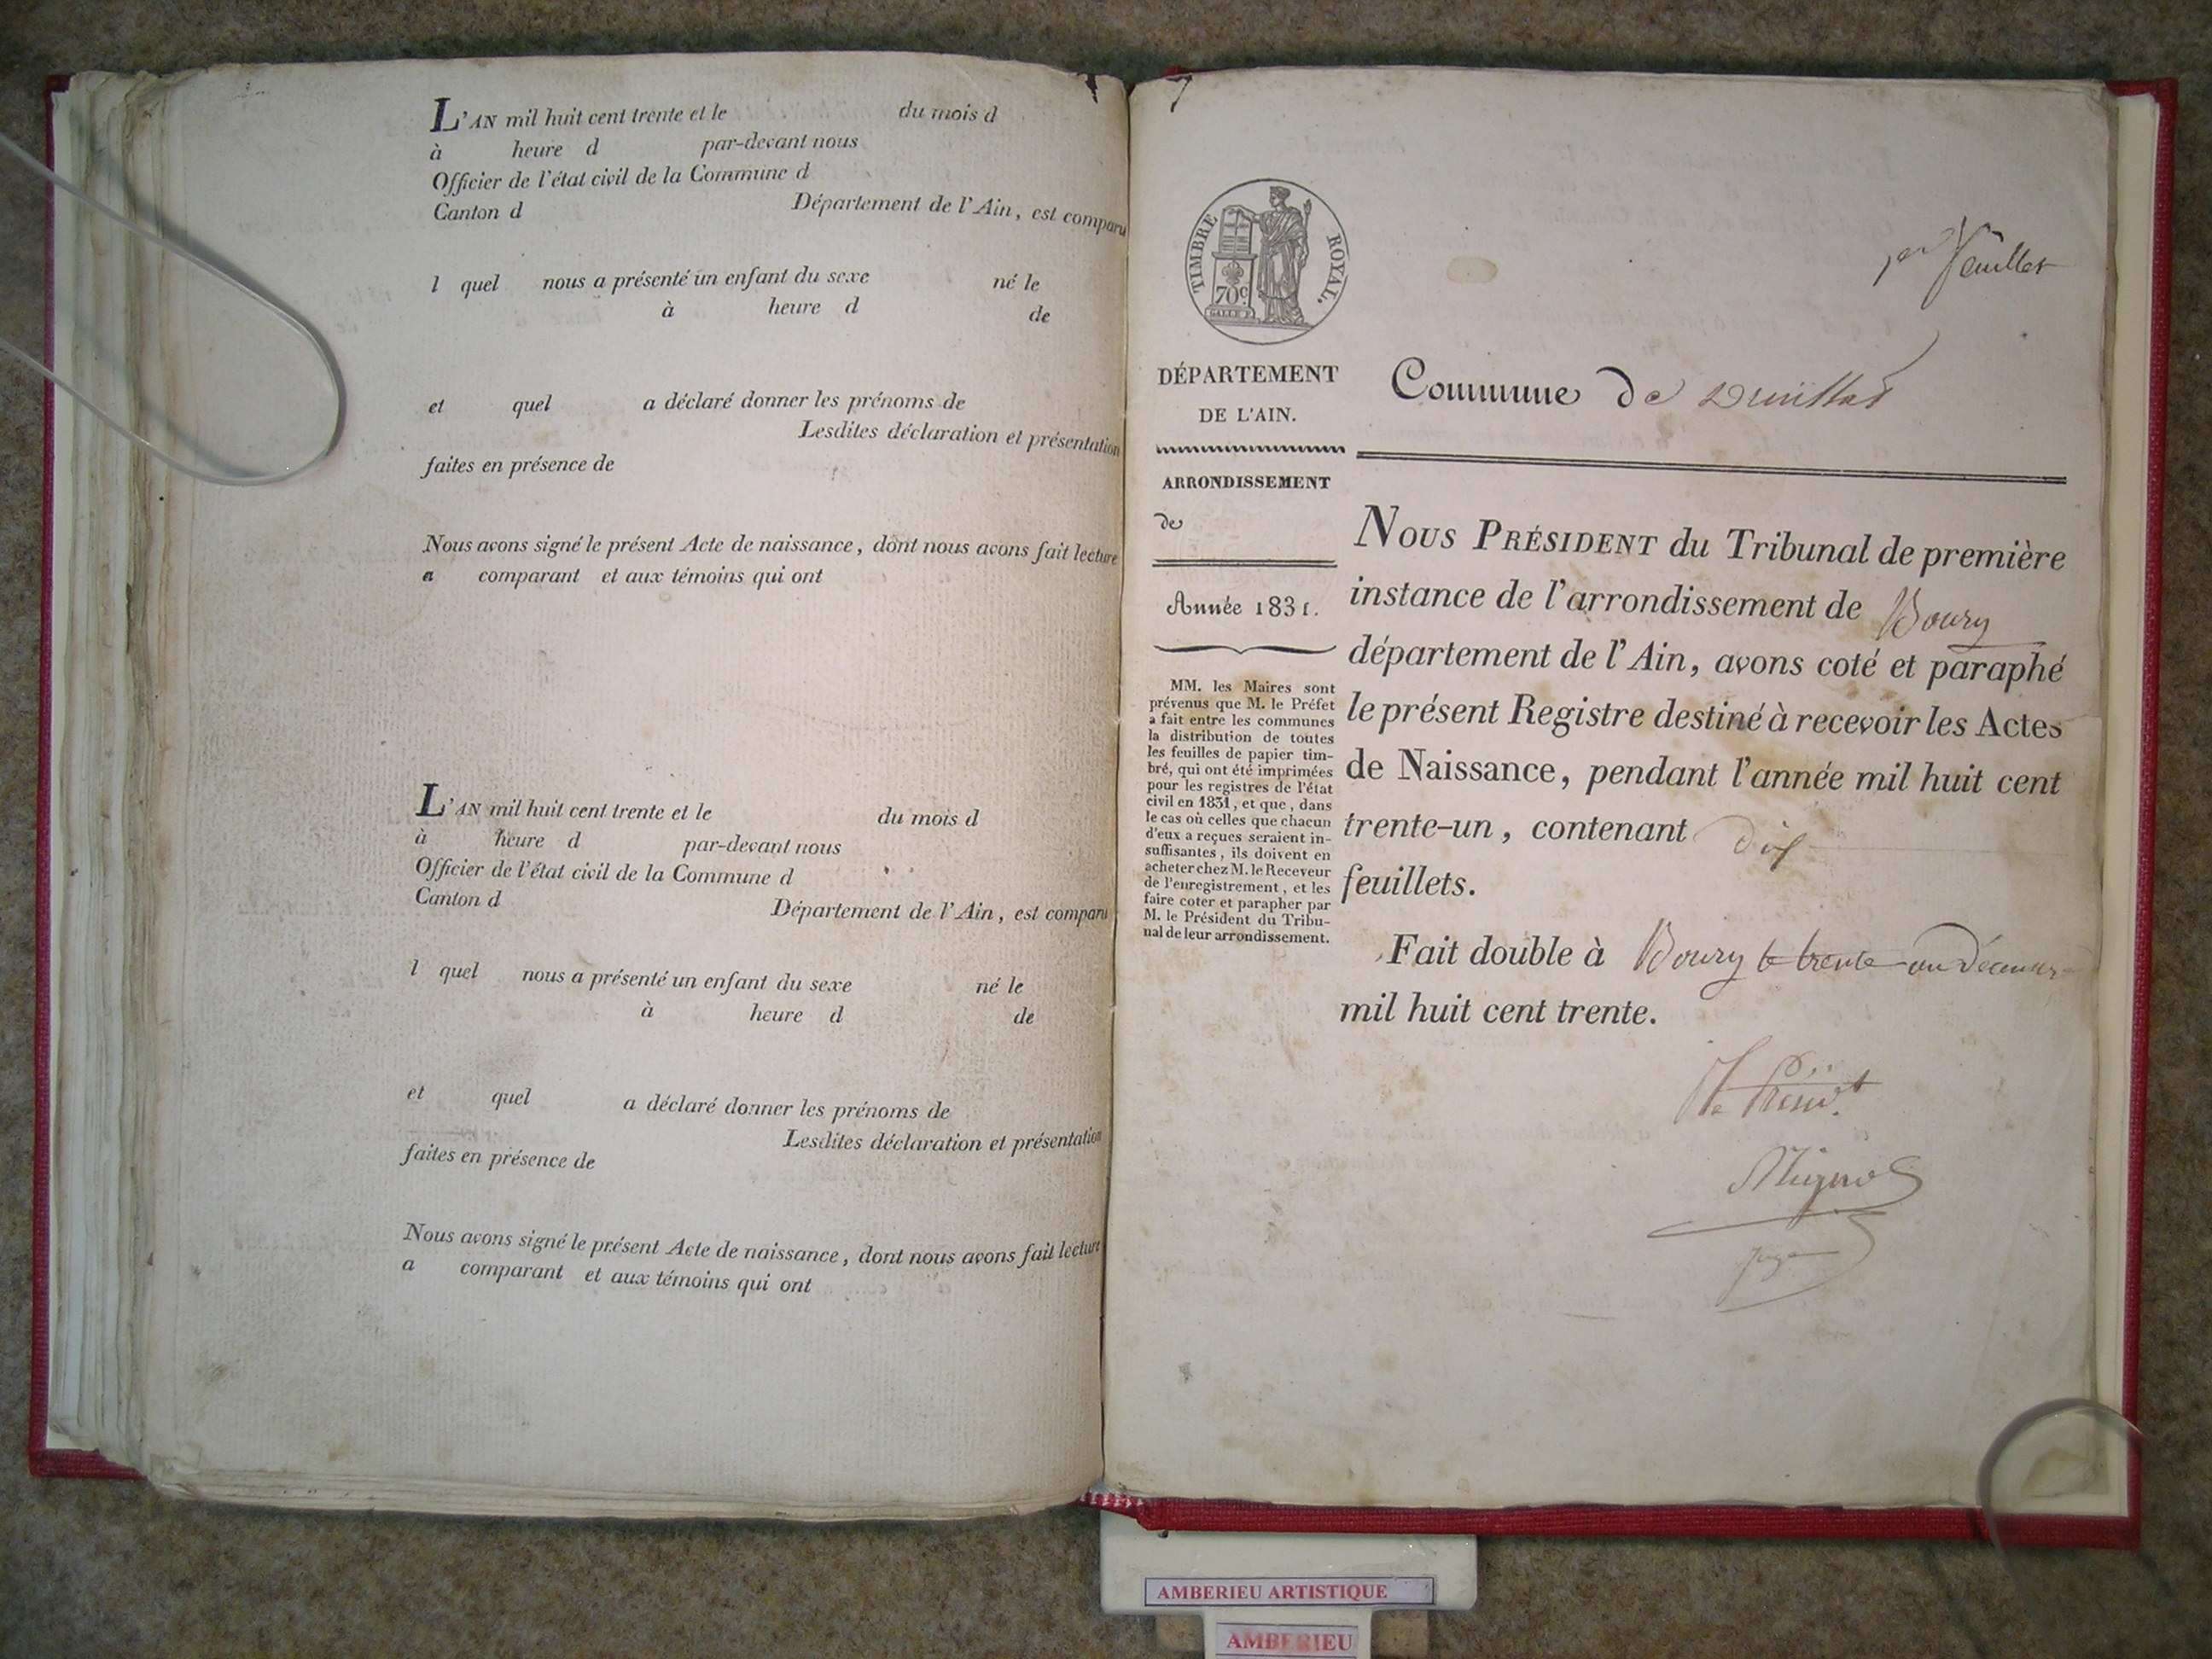 L'AN mil huit cent trente et le du mois d
à heure d par-devant nous
Officier de l'état civil de la Commune d
Canton d Département de l'Ain, est comparu
l quel nous a présenté un enfant du sexe né le
à heure d de
et quel a déclaré donner les prénoms de
Lesdites déclaration et présentation
faites en présence de
Nous avons signé le présent Acte de naissance, dont nous avons fait lecture
a comparant et aux témoins qui ont
L'AN mil huit cent trente et le du mois d
à heure d par-devant nous
Officier de l'état civil de la Commune d
Canton d Département de l'Ain, est comparu
l quel nous a présenté un enfant du sexe né le
à heure d de
et quel a déclaré donner les prénoms de
Lesdites déclaration et présentation
faites en présence de
Nous avons signé le présent Acte de naissance, dont nous avons fait lecture
a comparant et aux témoins qui ont
1er feuillet
TIMBRE ROYAL.
70c
DÉPARTEMENT
DE L'AIN.
ARRONDISSEMENT
de
Année 1831.
MM. les Maires sont
prévenus que M. le Préfet
a fait entre les communes
la distribution de toutes
les feuilles de papier tim-
bré, qui ont été imprimées
pour les registres de l'état
civil en 1831, et que, dans
le cas où celles que chacun
d'eux a reçues seraient in-
suffisantes, ils doivent en
acheter chez M. le Receveur
de l'enregistrement, et les
faire coter et parapher par
M. le Président du Tribu-
nal de leur arrondissement.
Commune de Druillat
NOUS PRÉSIDENT du Tribunal de première
instance de l'arrondissement de Bourg
département de l'Ain, avons coté et paraphé
le présent Registre destiné à recevoir les Actes
de Naissance, pendant l'année mil huit cent
trente-un, contenant dix
feuillets.
Fait double à Bourg le trente un Décembre
mil huit cent trente.
juge
AMBERIEU ARTISTIQUE
AMBERIEU